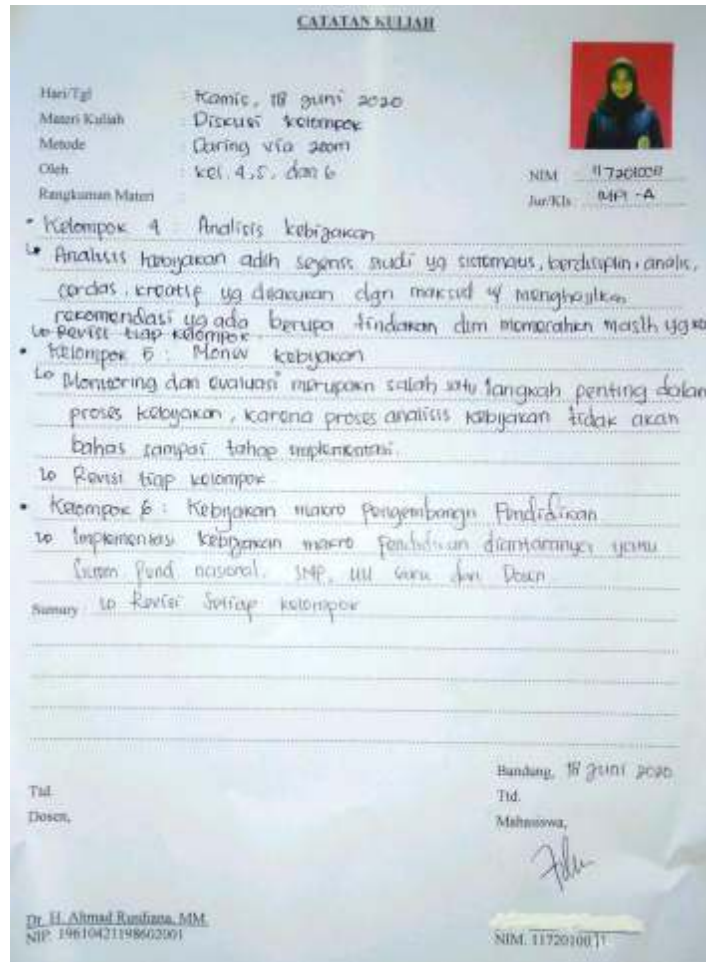 CATATAN KULIAH
Hari/Tgl : Kamis, 18 Juni 2020
Materi Kuliah : Diskusi kelompok
Metode : Daring via zoom
Oleh : kel. 4, 5, dan 6
NIM
Rangkuman Materi
Jur/Kls : MPI - A
• Kelompok 4 : Analisis kebijakan
↳ Analisis kebijakan adlh sejenis studi yg sistematis, berdisiplin, analis,
cerdas, kreatif yg dilakukan dgn maksud u/ menghasilkan
rekomendasi yg ada berupa tindakan dlm memecahkn maslh yg
↳ Revisi tiap kelompok
• Kelompok 5 : Monev kebijakan
↳ Monitoring dan evaluasi merupakn salah satu langkah penting dalam
proses kebijakan, karena proses analisis kebijakan tidak akan
bahas sampai tahap implementasi.
↳ Revisi tiap kelompok
• Kelompok 6 : Kebijakan makro Pengembangn Pendidikan
↳ Implementasi kebijakan makro pendidikan diantaranya yaitu
Sistem Pend nasional, SNP, UU Guru dan Dosen
Sumary ↳ Revisi Setiap kelompok
Bandung, 18 Juni 2020
Ttd.
Ttd.
Dosen,
Mahasiswa,
Dr. H. Ahmad Rusdiana, MM.
NIP. 196104211986021001
NIM.